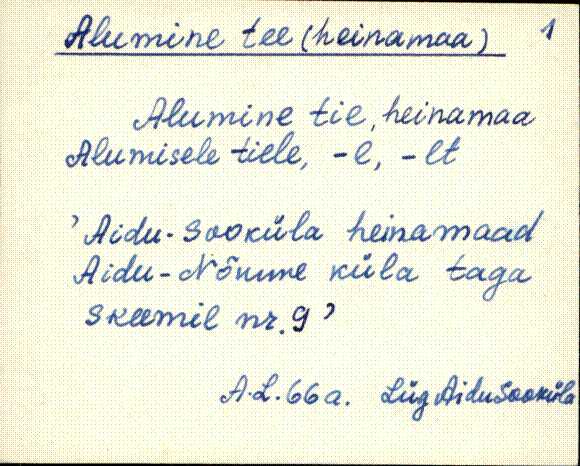 Alumine tee (heinamaa) 1
Alumine tie, heinamaa
Alumisele tiele, -l, -lt
'Aidu-Sooküla heinamaad
Aidu-Nõmme küla taga
skeemil nr. 9'
A.L. 66 a. Lüg Aidu Sooküla